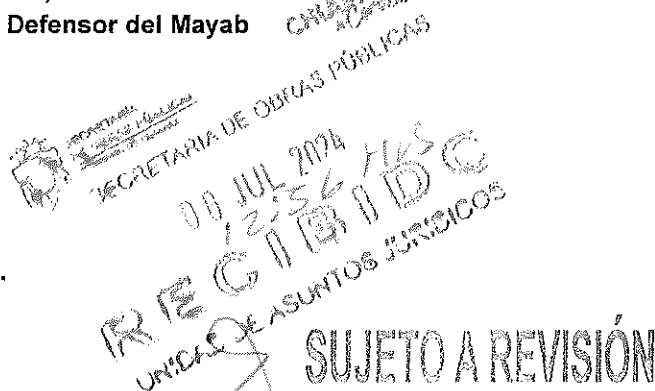 Defensor del Mayab
SECRETARIA DE OBRAS PÚBLICAS
JUL 2024
12:56 Hrs
RECIBIDO
UNIDAD DE ASUNTOS JURIDICOS
SUJETO A REVISIÓN